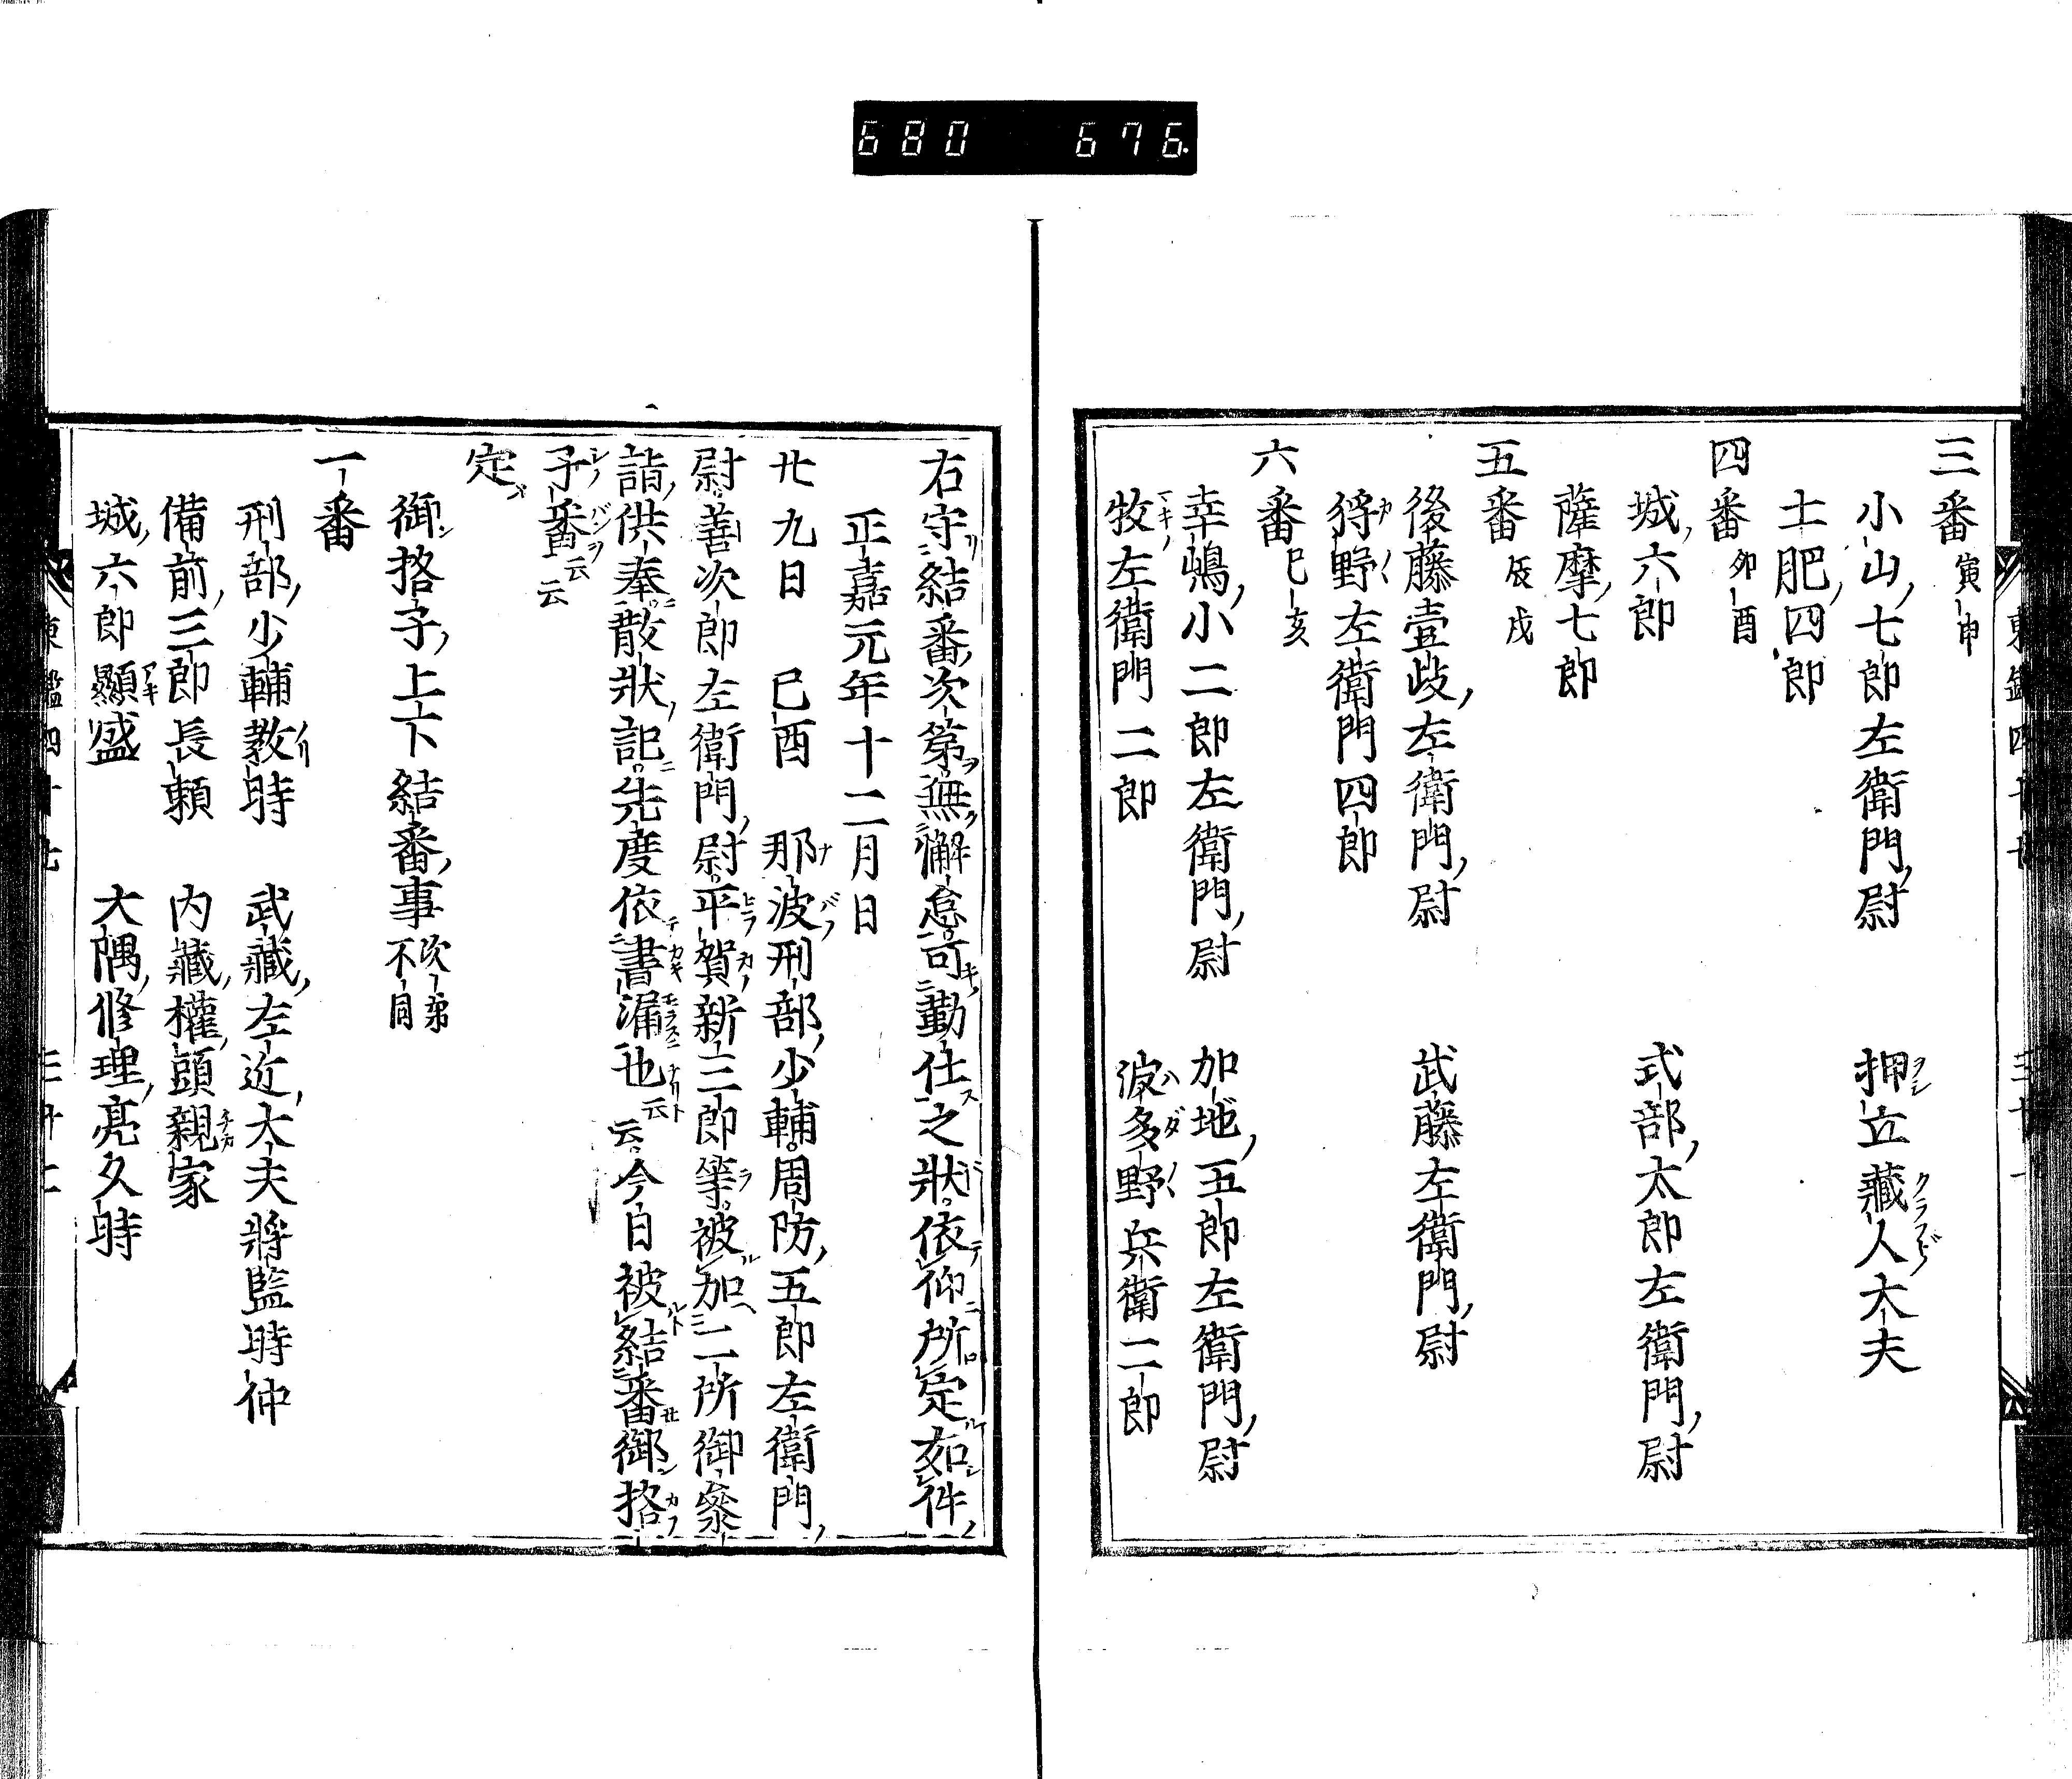 680 676
三番 寅申
小山七郎左衛門尉 押立藏人大夫
土肥四郎
四番 卯酉
城六郎 式部太郎左衛門尉
薩摩七郎
五番 辰戌
後藤壹岐左衛門尉 武藤左衛門尉
狩野左衛門四郎
六番 巳亥
幸嶋小二郎左衛門尉 加地五郎左衛門尉
牧左衛門二郎 波多野兵衛二郎
右守結番次第無懈怠可勤仕之狀依仰所定如件
正嘉元年十二月日
廿九日 己酉 那波刑部少輔周防五郎左衛門
尉善次郎左衛門尉平賀新三郎等被加二所御參
詣供奉散狀記先度依書漏也云云今日被結番御格
子番云云
定
御格子上下結番事 次第不同
一番
刑部少輔教時 武藏左近大夫將監時仲
備前三郎長頼 内藏權頭親家
城六郎顯盛 大隅修理亮久時